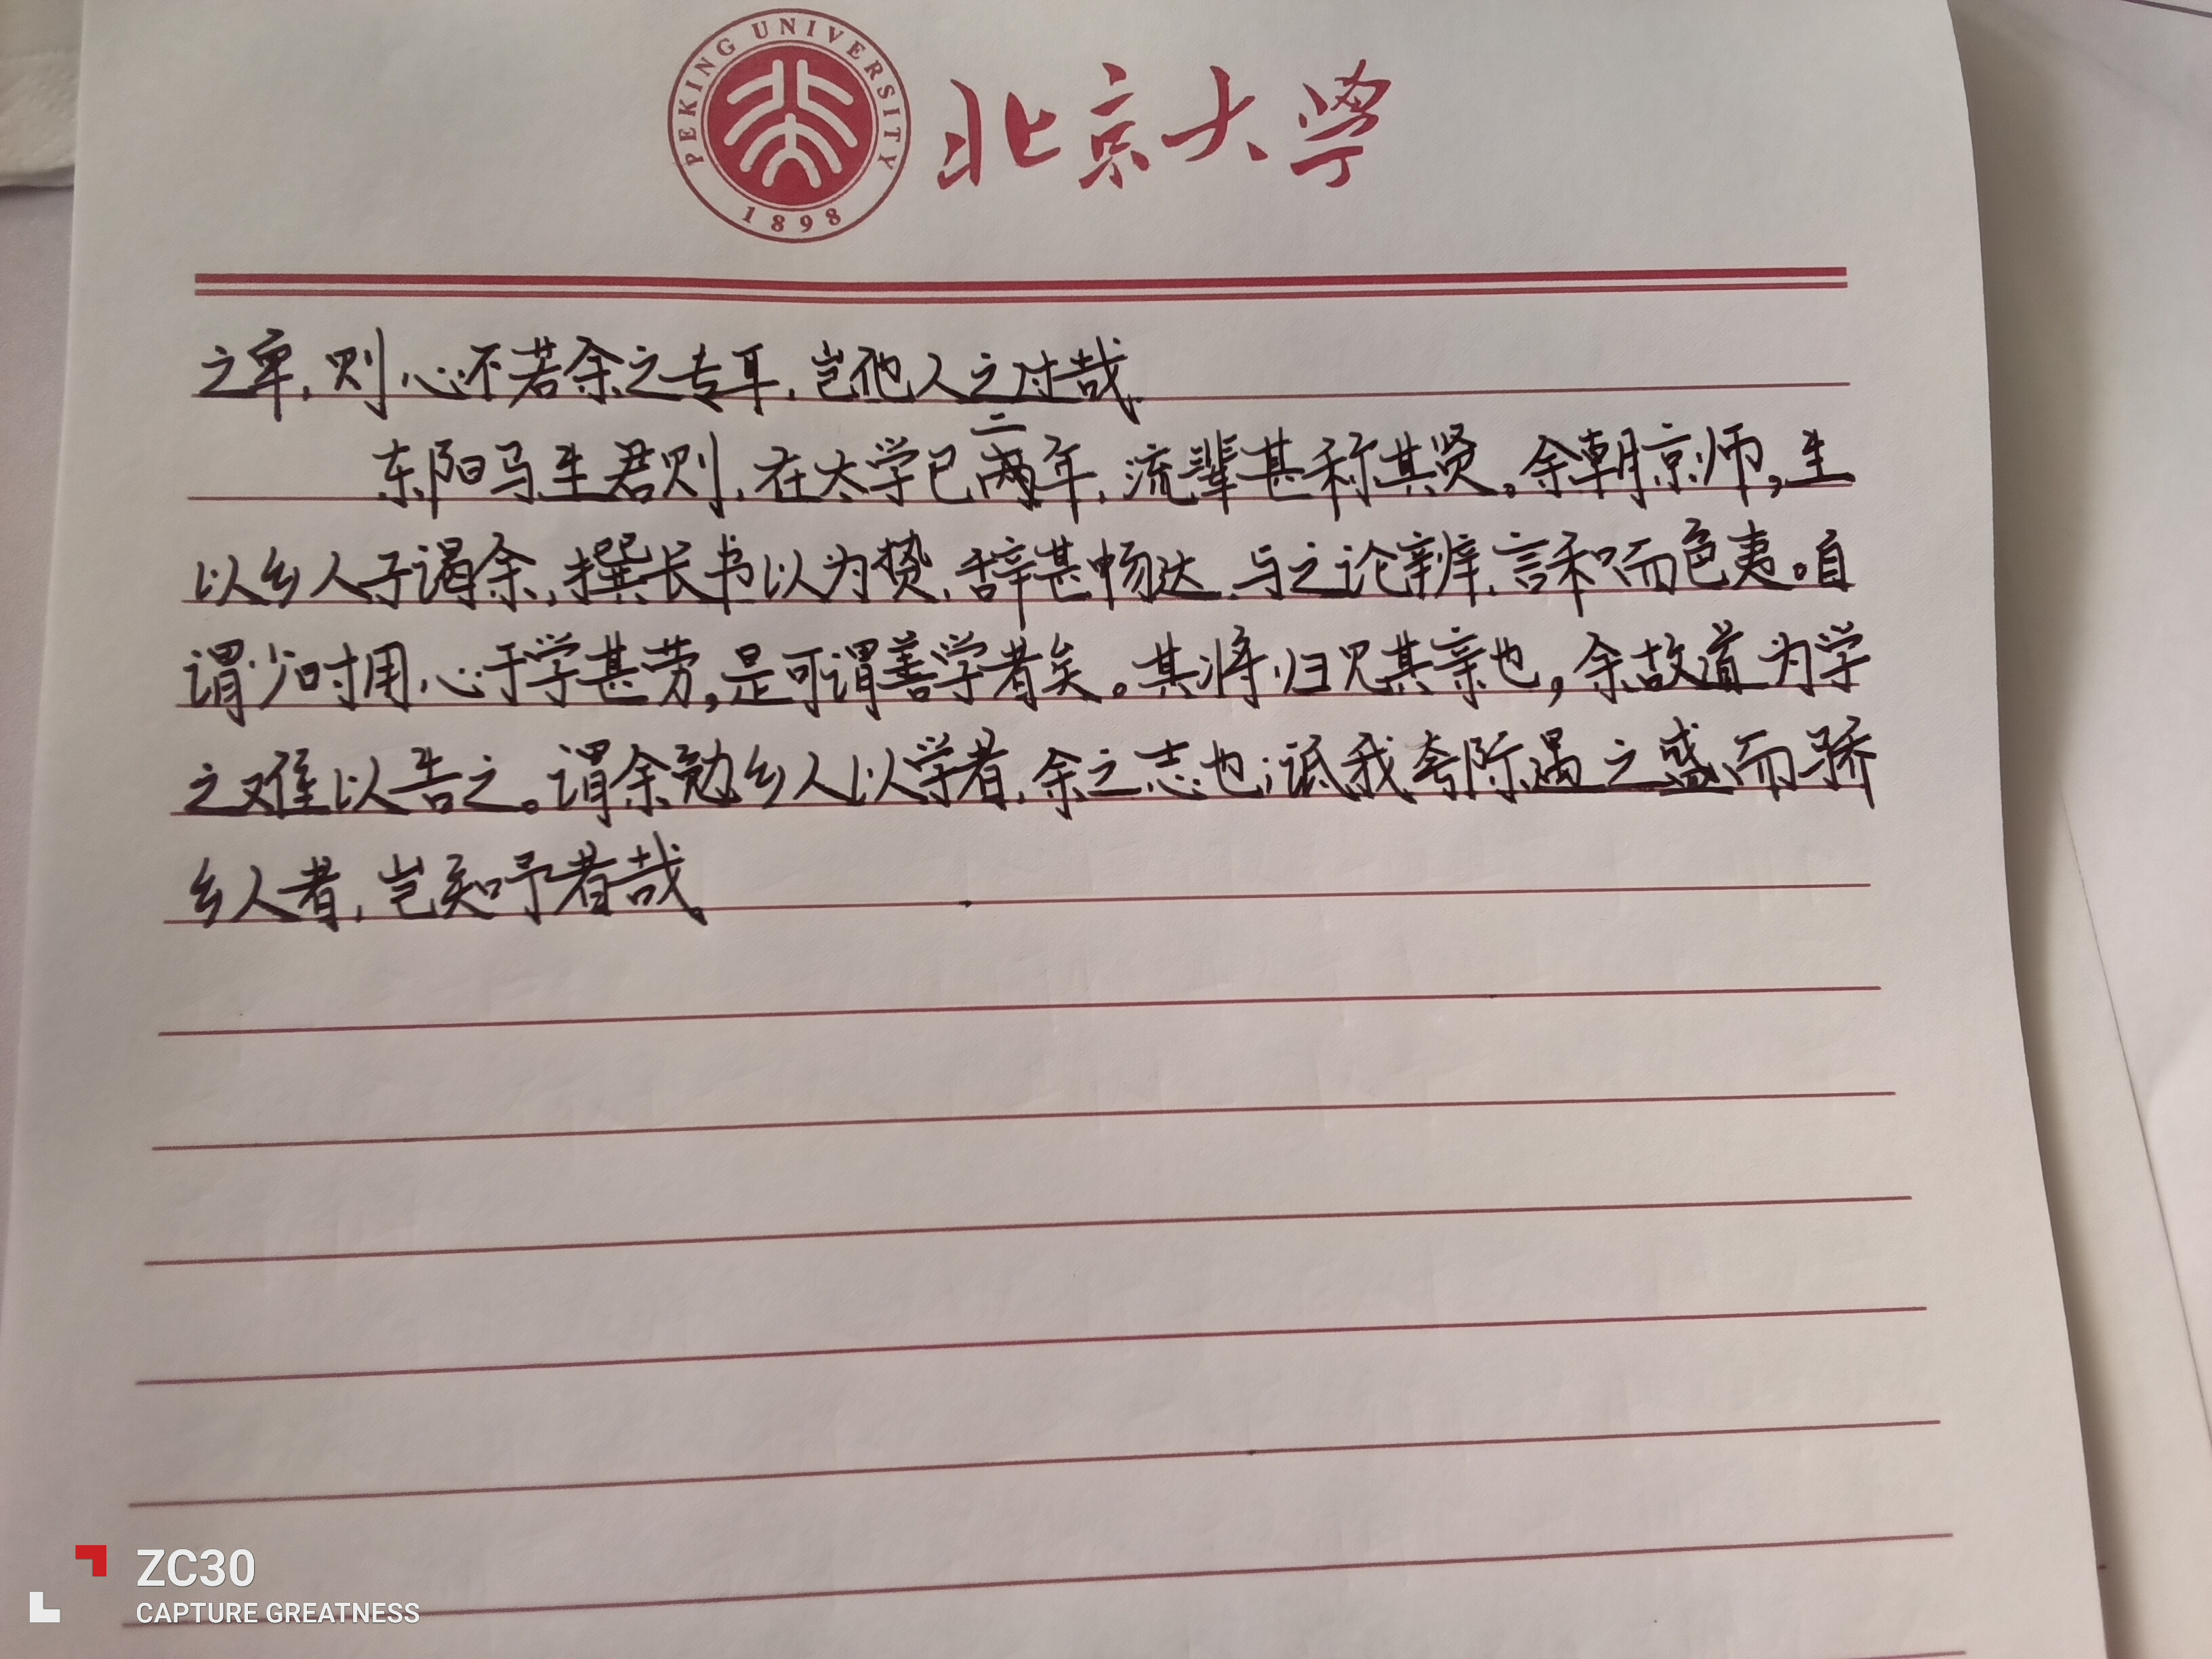 PEKING UNIVERSITY
1898
北京大学
之卑,则心不若余之专耳,岂他人之过哉。
二
东阳马生君则,在太学已两年,流辈甚称其贤。余朝京师,生
以乡人子谒余,撰长书以为贽,辞甚畅达,与之论辨,言和而色夷。自
谓少时用心于学甚劳,是可谓善学者矣。其将归见其亲也,余故道为学
之难以告之。谓余勉乡人以学者,余之志也;诋我夸际遇之盛而骄
乡人者,岂知予者哉。
ZC30
CAPTURE GREATNESS